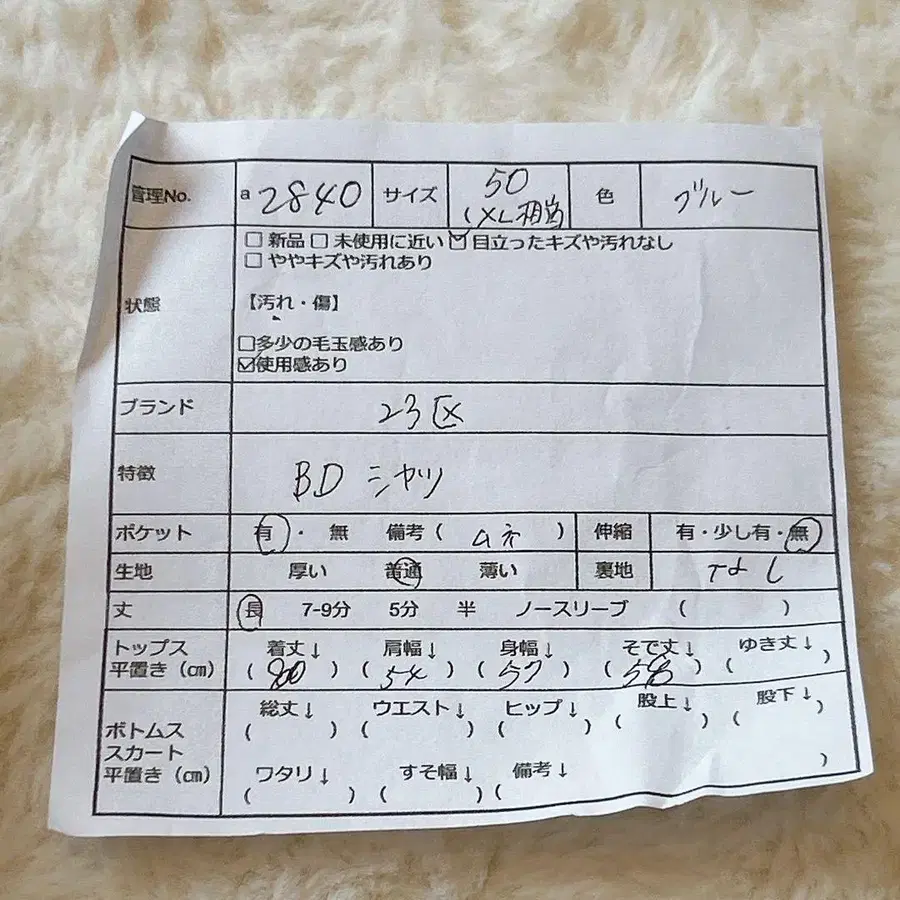 管理No. a 2840 サイズ 50 (XL相当 色 ブルー
□ 新品 □ 未使用に近い ☑ 目立ったキズや汚れなし
□ ややキズや汚れあり
状態 【汚れ・傷】
□多少の毛玉感あり
☑使用感あり
ブランド 23区
特徴 BD シャツ
ポケット 有 ・ 無 備考 ( ムネ ) 伸縮 有・少し有・無
生地 厚い 普通 薄い 裏地 なし
丈 長 7-9分 5分 半 ノースリーブ ( )
トップス 着丈↓ 肩幅↓ 身幅↓ そで丈↓ ゆき丈↓
平置き (cm) ( 80 ) ( 54 ) ( 57 ) ( 58 ) ( )
総丈↓ ウエスト↓ ヒップ↓ 股上↓ 股下↓
ボトムス ( ) ( ) ( ) ( ) ( )
スカート
平置き (cm) ワタリ↓ すそ幅↓ 備考↓
( ) ( ) ( )